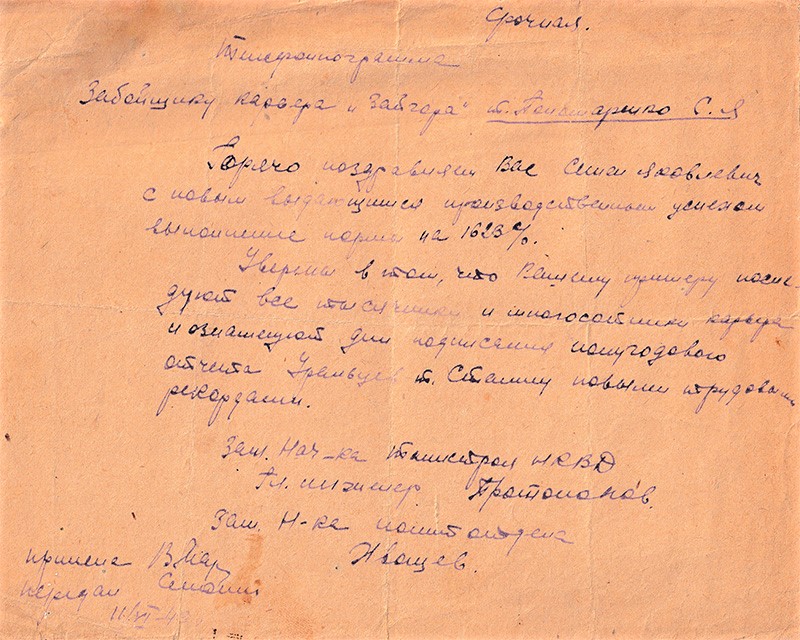 Срочная.
Телефонограмма
Забойщику карьера "Зайгора" т. Пономаренко С.Я
Горячо поздравляем Вас Семен Яковлевич
с новым выдающимся производственным успехом
выполнение нормы на 1623%.
Уверены в том, что Вашему примеру после-
дуют все тысячники и многосотники карьера
и ознаменуют дни подписания полугодового
отчета Уральцев т. Сталину новыми трудовыми
рекордами.
Зам. Нач-ка Тагилстроя НКВД
Гл. инженер Протопопов.
Зам. Н-ка политотдела
Иващев.
приняла
передал
11/VI-43